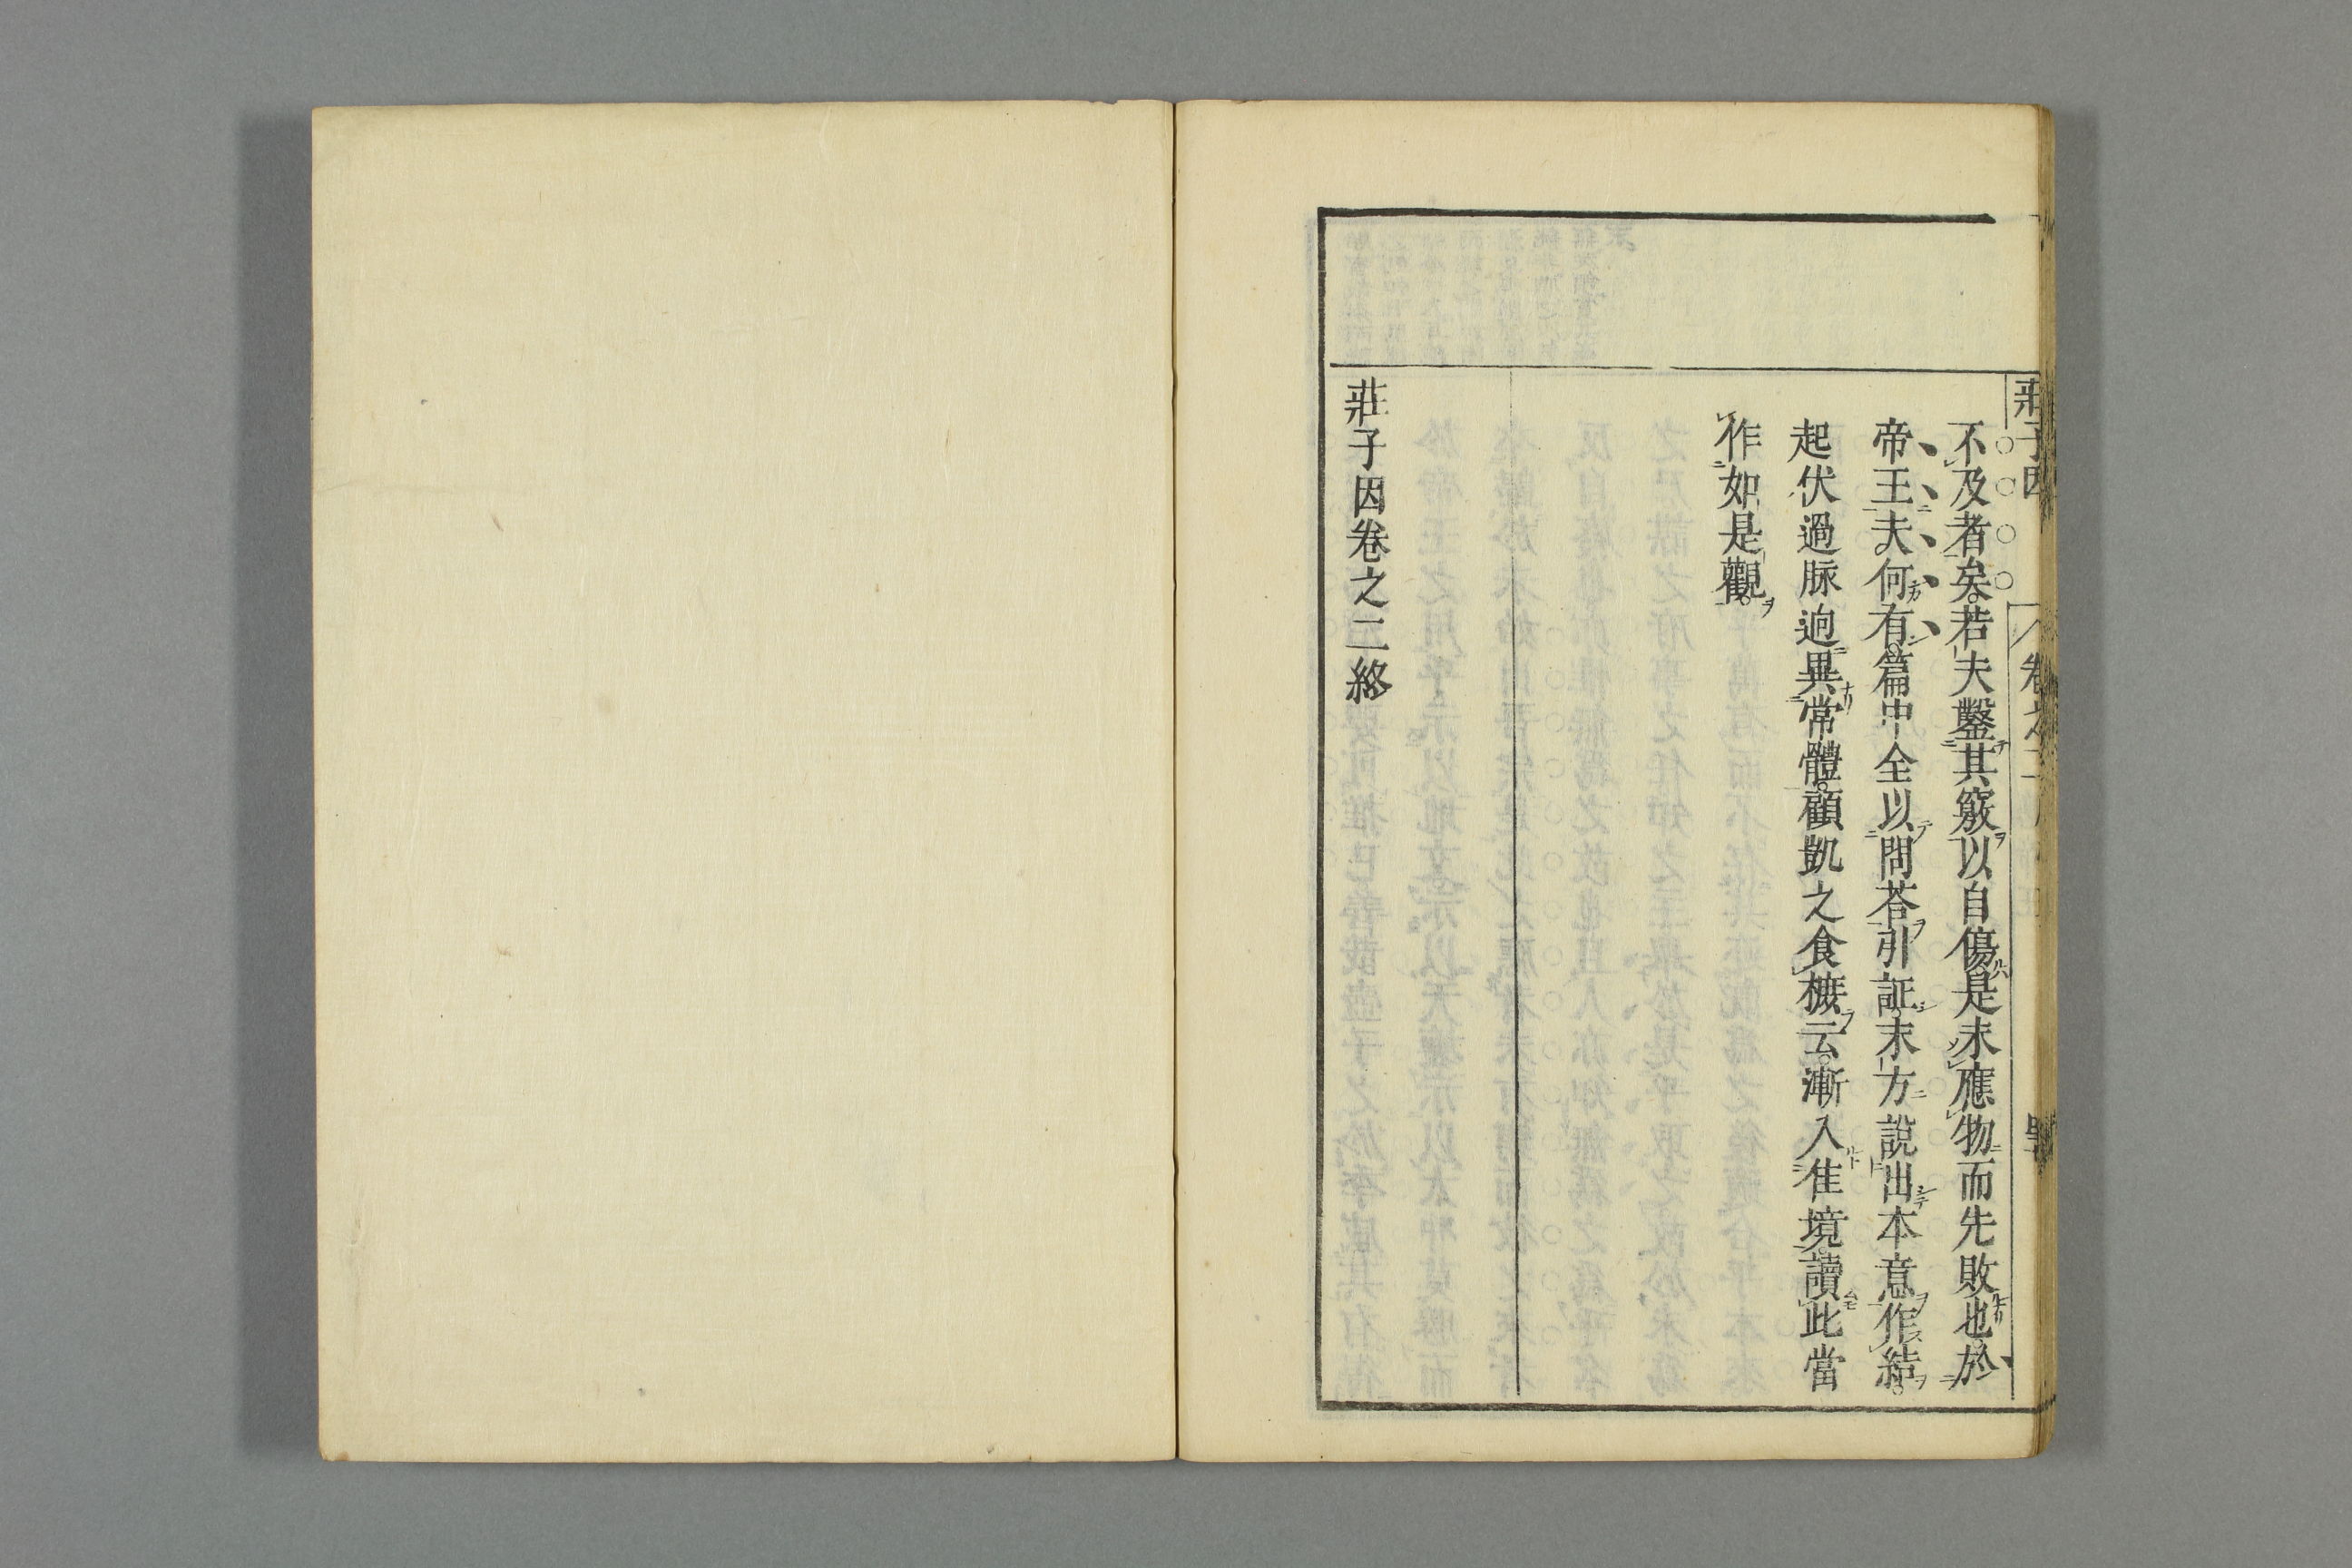 莊子因 卷之二
不及者矣。若夫鑿其竅以自傷是未應物而先敗也。於
帝王夫何有。篇中全以問荅引証。末方說出本意作結。
起伏過脉逈異常體。顧凱之食𣞙云。漸入佳境。讀此當
作如是觀。
莊子因卷之二終